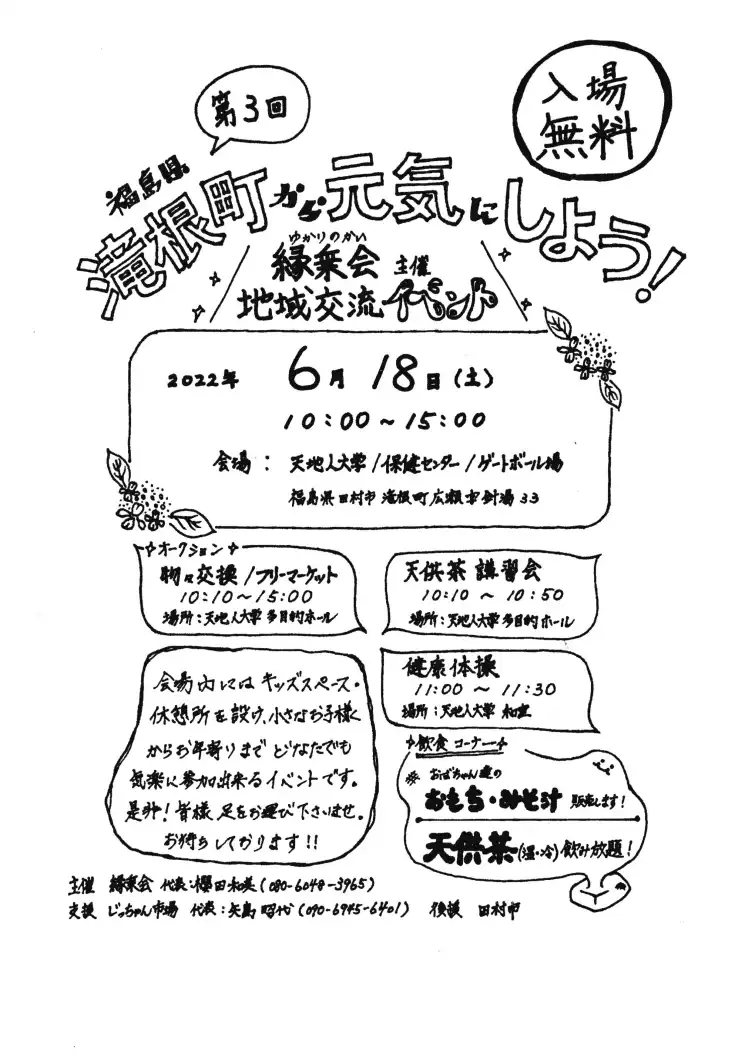 第3回
入場
無料
福島県
滝根町から元気にしよう!
ゆかりのかい
縁乗会 主催
地域交流イベント
2022年 6月 18日(土)
10:00~15:00
会場: 天地人大学/保健センター/ゲートボール場
福島県田村市滝根町広瀬字針湯33
オークション
物々交換/フリーマーケット
10:10~15:00
場所:天地人大学 多目的ホール
天供茶 講習会
10:10 ~ 10:50
場所:天地人大学 多目的ホール
健康体操
11:00 ~ 11:30
場所:天地人大学 和室
会場内にはキッズスペース・
休憩所を設け、小さなお子様
からお年寄りまでどなたでも
気楽に参加出来るイベントです。
是非!皆様 足をお運び下さいませ。
お待ちしております!!
飲食コーナー
おばちゃん達の
おもち・みそ汁 販売します!
天供茶(温・冷)飲み放題!
主催 縁乗会 代表:櫻田和美(080-6048-3965)
支援 じっちゃん市場 代表:矢島昭代(090-6945-6401) 後援 田村市